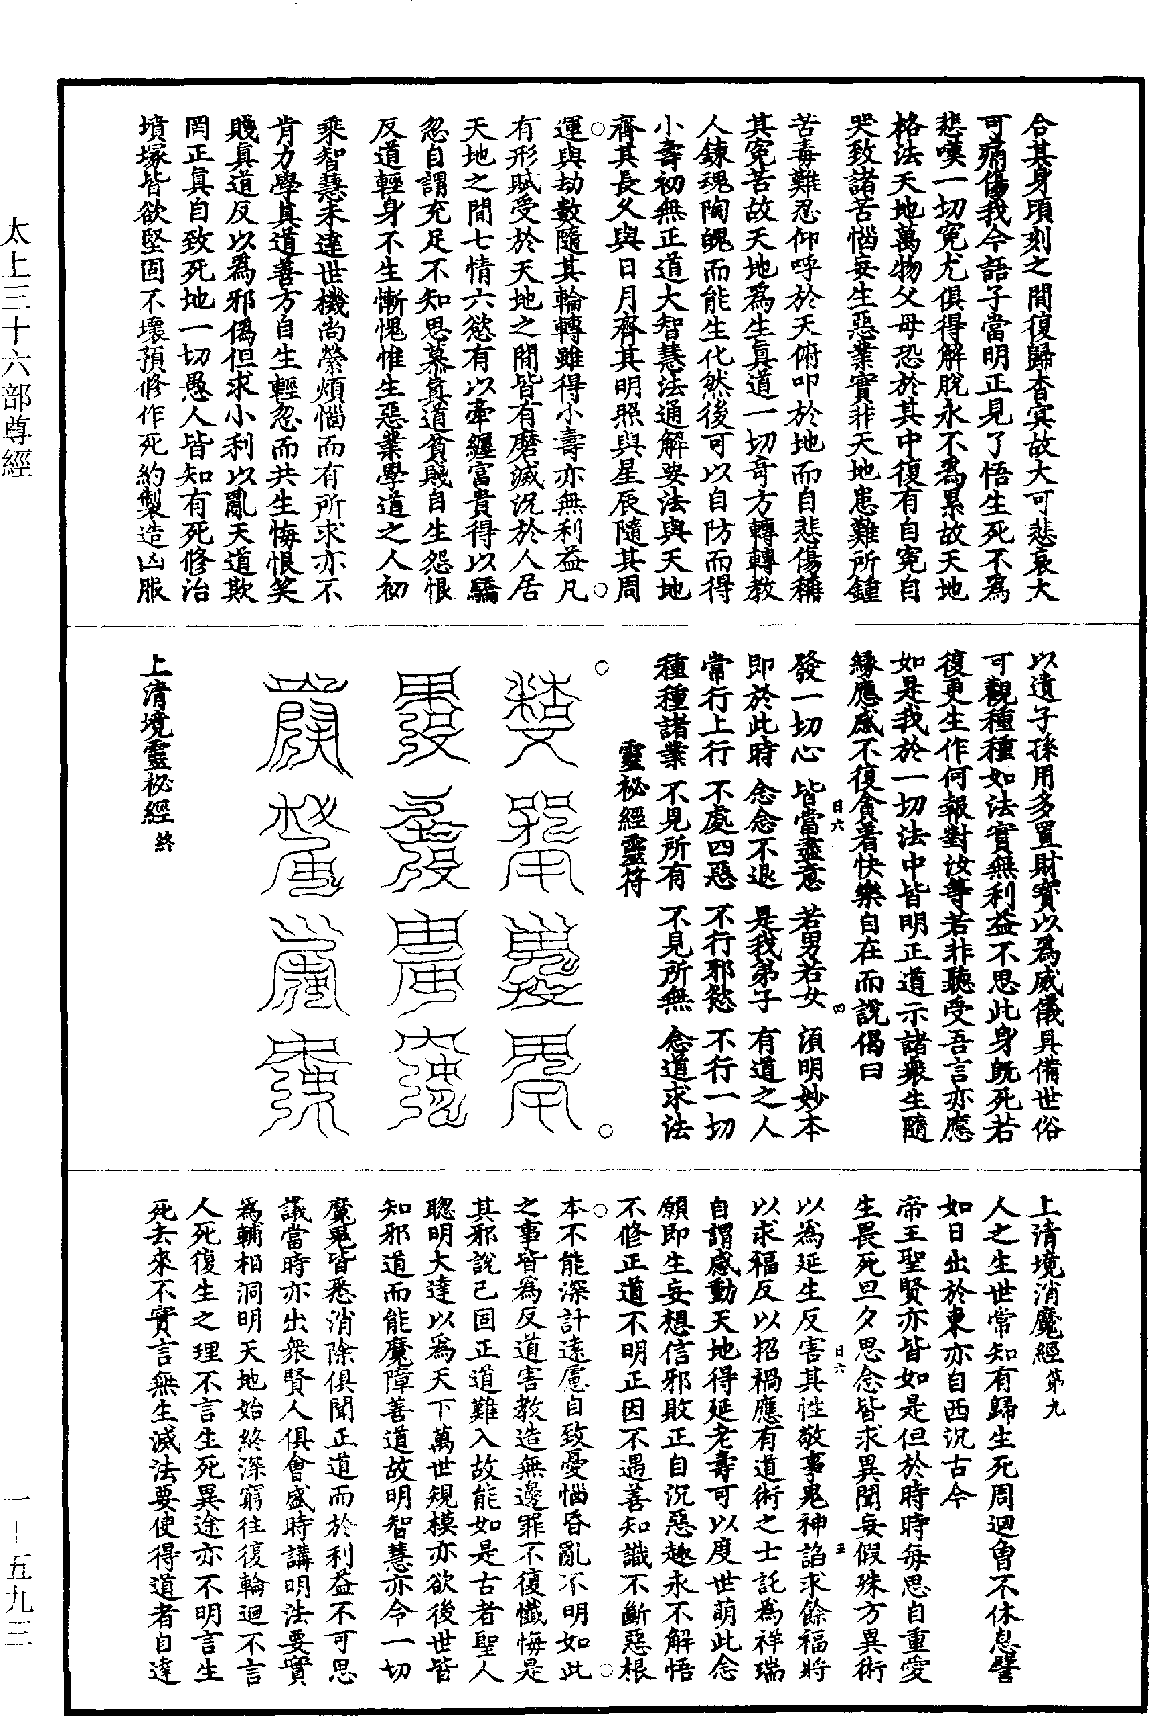 合其身頃刻之間復歸杳冥故大可悲哀大
可痛傷我今語子當明正見了悟生死不爲
悲嘆一切冤尤俱得解脫永不爲累故天地
格法天地萬物父母恐於其中復有自冤自
哭致諸苦惱妄生惡業實非天地患難所鍾
苦毒難忍仰呼於天俯叩於地而自悲傷稱
其冤苦故天地爲生真道一切奇方轉轉教
人鍊魂陶魄而能生化然後可以自防而得
小壽初無正道大智慧法通解要法與天地
齊其長久與日月齊其明照與星辰隨其周
運與劫數隨其輪轉雖得小壽亦無利益凡
有形賦受於天地之間皆有磨滅況於人居
天地之間七情六慾有以牽纏富貴得以驕
忽自謂充足不知思慕真道貧賤自生怨恨
反道輕身不生慚愧惟生惡業學道之人初
乘智慧未達世機尚縈煩惱而有所求亦不
肯力學真道善方自生輕忽而共生悔恨笑
賤真道反以爲邪僞但求小利以亂天道欺
罔正真自致死地一切愚人皆知有死修治
墳塚皆欲堅固不壞預修作死約製造凶服
以遺子孫用多置財寶以爲威儀具備世俗
可觀種種如法實無利益不思此身既死若
復更生作何報對汝等若非聽受吾言亦應
如是我於一切法中皆明正道示諸衆生隨
緣應感不復貪著快樂自在而說偈曰
發一切心 皆當盡意 若男若女 須明妙本
日六 四
即於此時 念念不退 是我弟子 有道之人
常行上行 不處四惡 不行邪慾 不行一切
種種諸業 不見所有 不見所無 念道求法
靈祕經靈符
上清境靈祕經終
上清境消魔經第九
人之生世常知有歸生死周迴會不休息譬
如日出於東亦自西沉古今
帝王聖賢亦皆如是但於時時每思自重愛
生畏死旦夕思念皆求異聞妄假殊方異術
以爲延生反害其性敬事鬼神諂求餘福將
日六 五
以求福反以招禍應有道術之士託爲祥瑞
自謂感動天地得延老壽可以度世萌此念
願即生妄想信邪敗正自沉惡趣永不解悟
不修正道不明正因不遇善知識不斷惡根
本不能深計遠慮自致憂惱昏亂不明如此
之事皆爲反道害教造無邊罪不復懺悔是
其邪說已固正道難入故能如是古者聖人
聰明大達以爲天下萬世規模亦欲後世皆
知邪道而能魔障善道故明智慧亦令一切
魔鬼皆悉消除俱聞正道而於利益不可思
議當時亦出衆賢人俱會盛時講明法要實
爲輔相洞明天地始終深窮往復輪迴不言
人死復生之理不言生死異途亦不明言生
死去來不實言無生滅法要使得道者自達
太上三十六部尊經
一—五九三